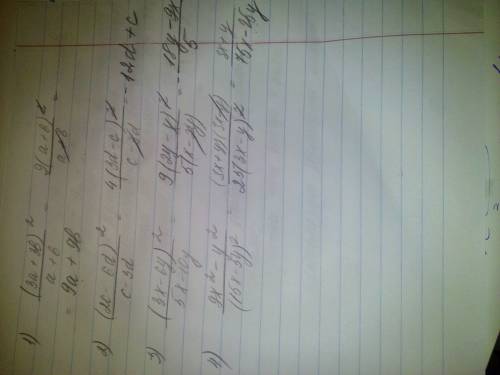 1) (3a+3b)² / a+b = 9(a+b)² / a+b =
= 9a + 9b
2) (2c-6d)² / c-3d = 4(3d-c)² / c-3d = -12d+c
3) (3x-6y)² / 5x-10y = 9(2y-x)² / 5(x-2y) = - 18y-9x / 5
4) 9x²-y² / (15x-5y)² = (3x+y)(3x-y) / 25(3x-y)² = 3x+y / 75x-25y